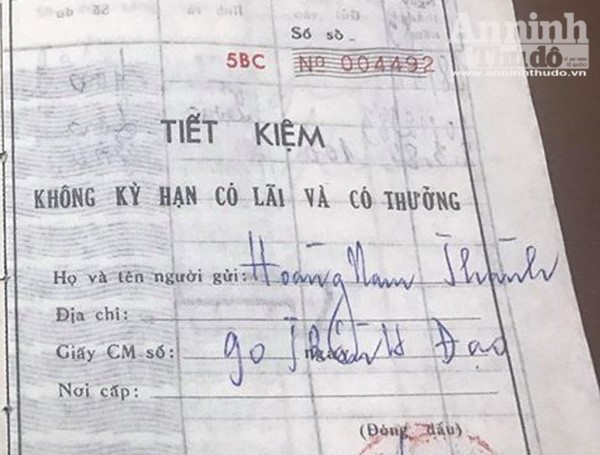 An ninh
Thủ đô
www.anninhthudo.vn
Số sổ
5BC Nọ 004492
TIẾT KIỆM
KHÔNG KỲ HẠN CÓ LÃI VÀ CÓ THƯỞNG
Họ và tên người gửi: Hoàng Nam Thành
Địa chỉ:
Giấy CM số: 90 ngày Đạo
Nơi cấp:
(Đóng dấu)